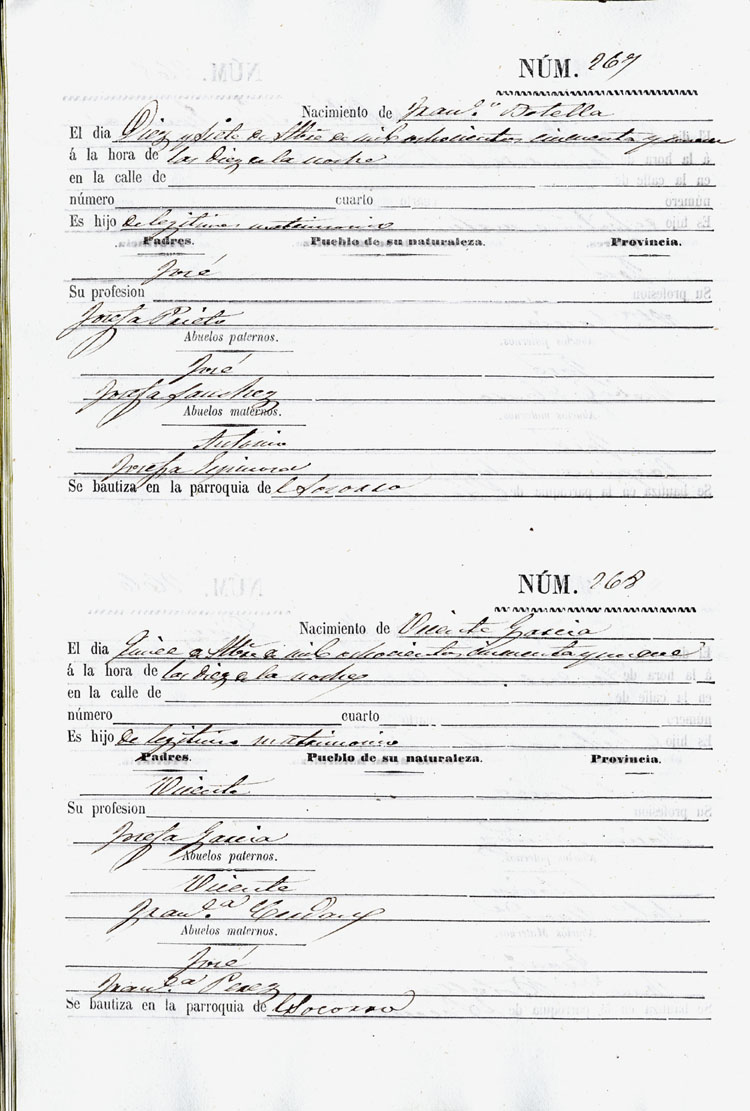 NÚM. 267
Nacimiento de Fran.co Botella
El dia Diez y siete de Stbre de mil ochocientos cincuenta y nueve
á la hora de las diez de la noche
en la calle de
número cuarto
Es hijo de legitimo matrimonio
Padres. Pueblo de su naturaleza. Provincia.
José
Su profesion
Josefa Prieto
Abuelos paternos.
José
Josefa Sanchez
Abuelos maternos.
Antonio
Josefa Espinosa
Se bautiza en la parroquia de Socorro
NÚM. 268
Nacimiento de Vicente Garcia
El dia Quince de Stbre de mil ochocientos cincuenta y nueve
á la hora de las diez de la noche
en la calle de
número cuarto
Es hijo de legitimo matrimonio
Padres. Pueblo de su naturaleza. Provincia.
Vicente
Su profesion
Josefa Garcia
Abuelos paternos.
Vicente
Fran.ca
Abuelos maternos.
José
Fran.ca Perez
Se bautiza en la parroquia de Socorro